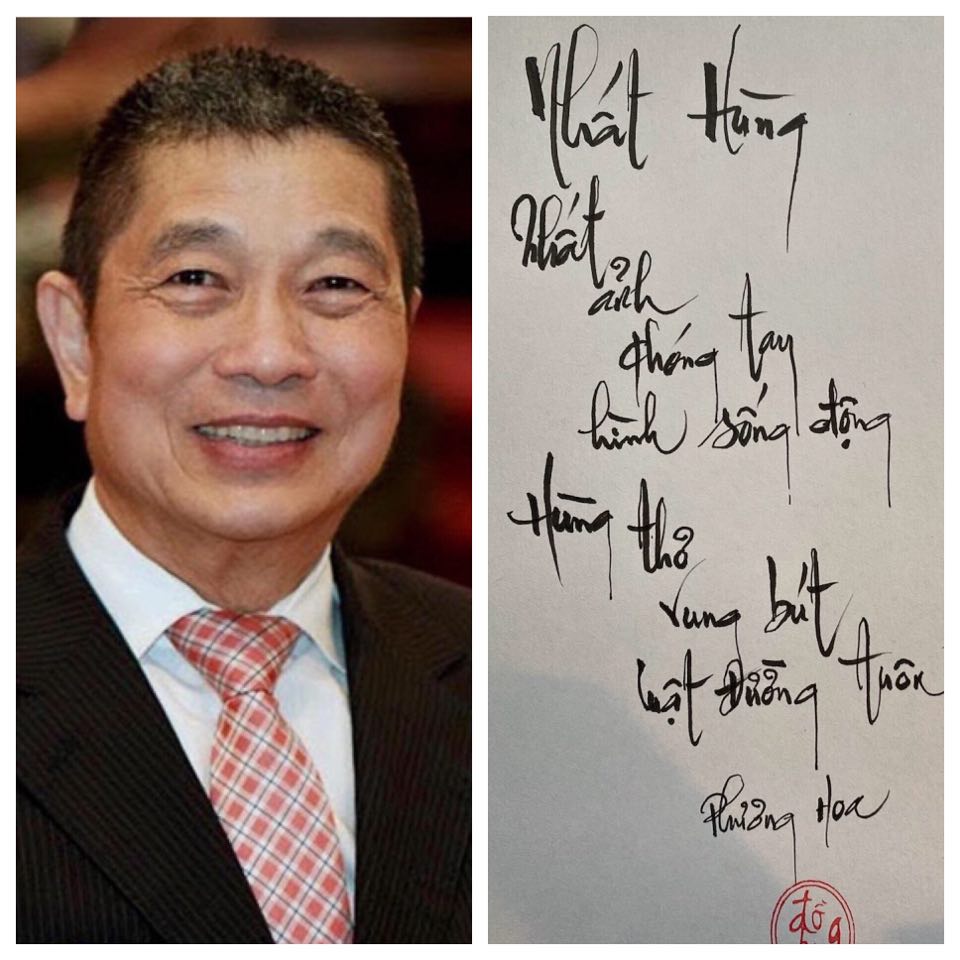 Nhất Hùng
Nhất
ảnh
phóng tay
hình sống động
Hùng thơ
vung bút
luật Đường tuôn
Phương Hoa
đồ